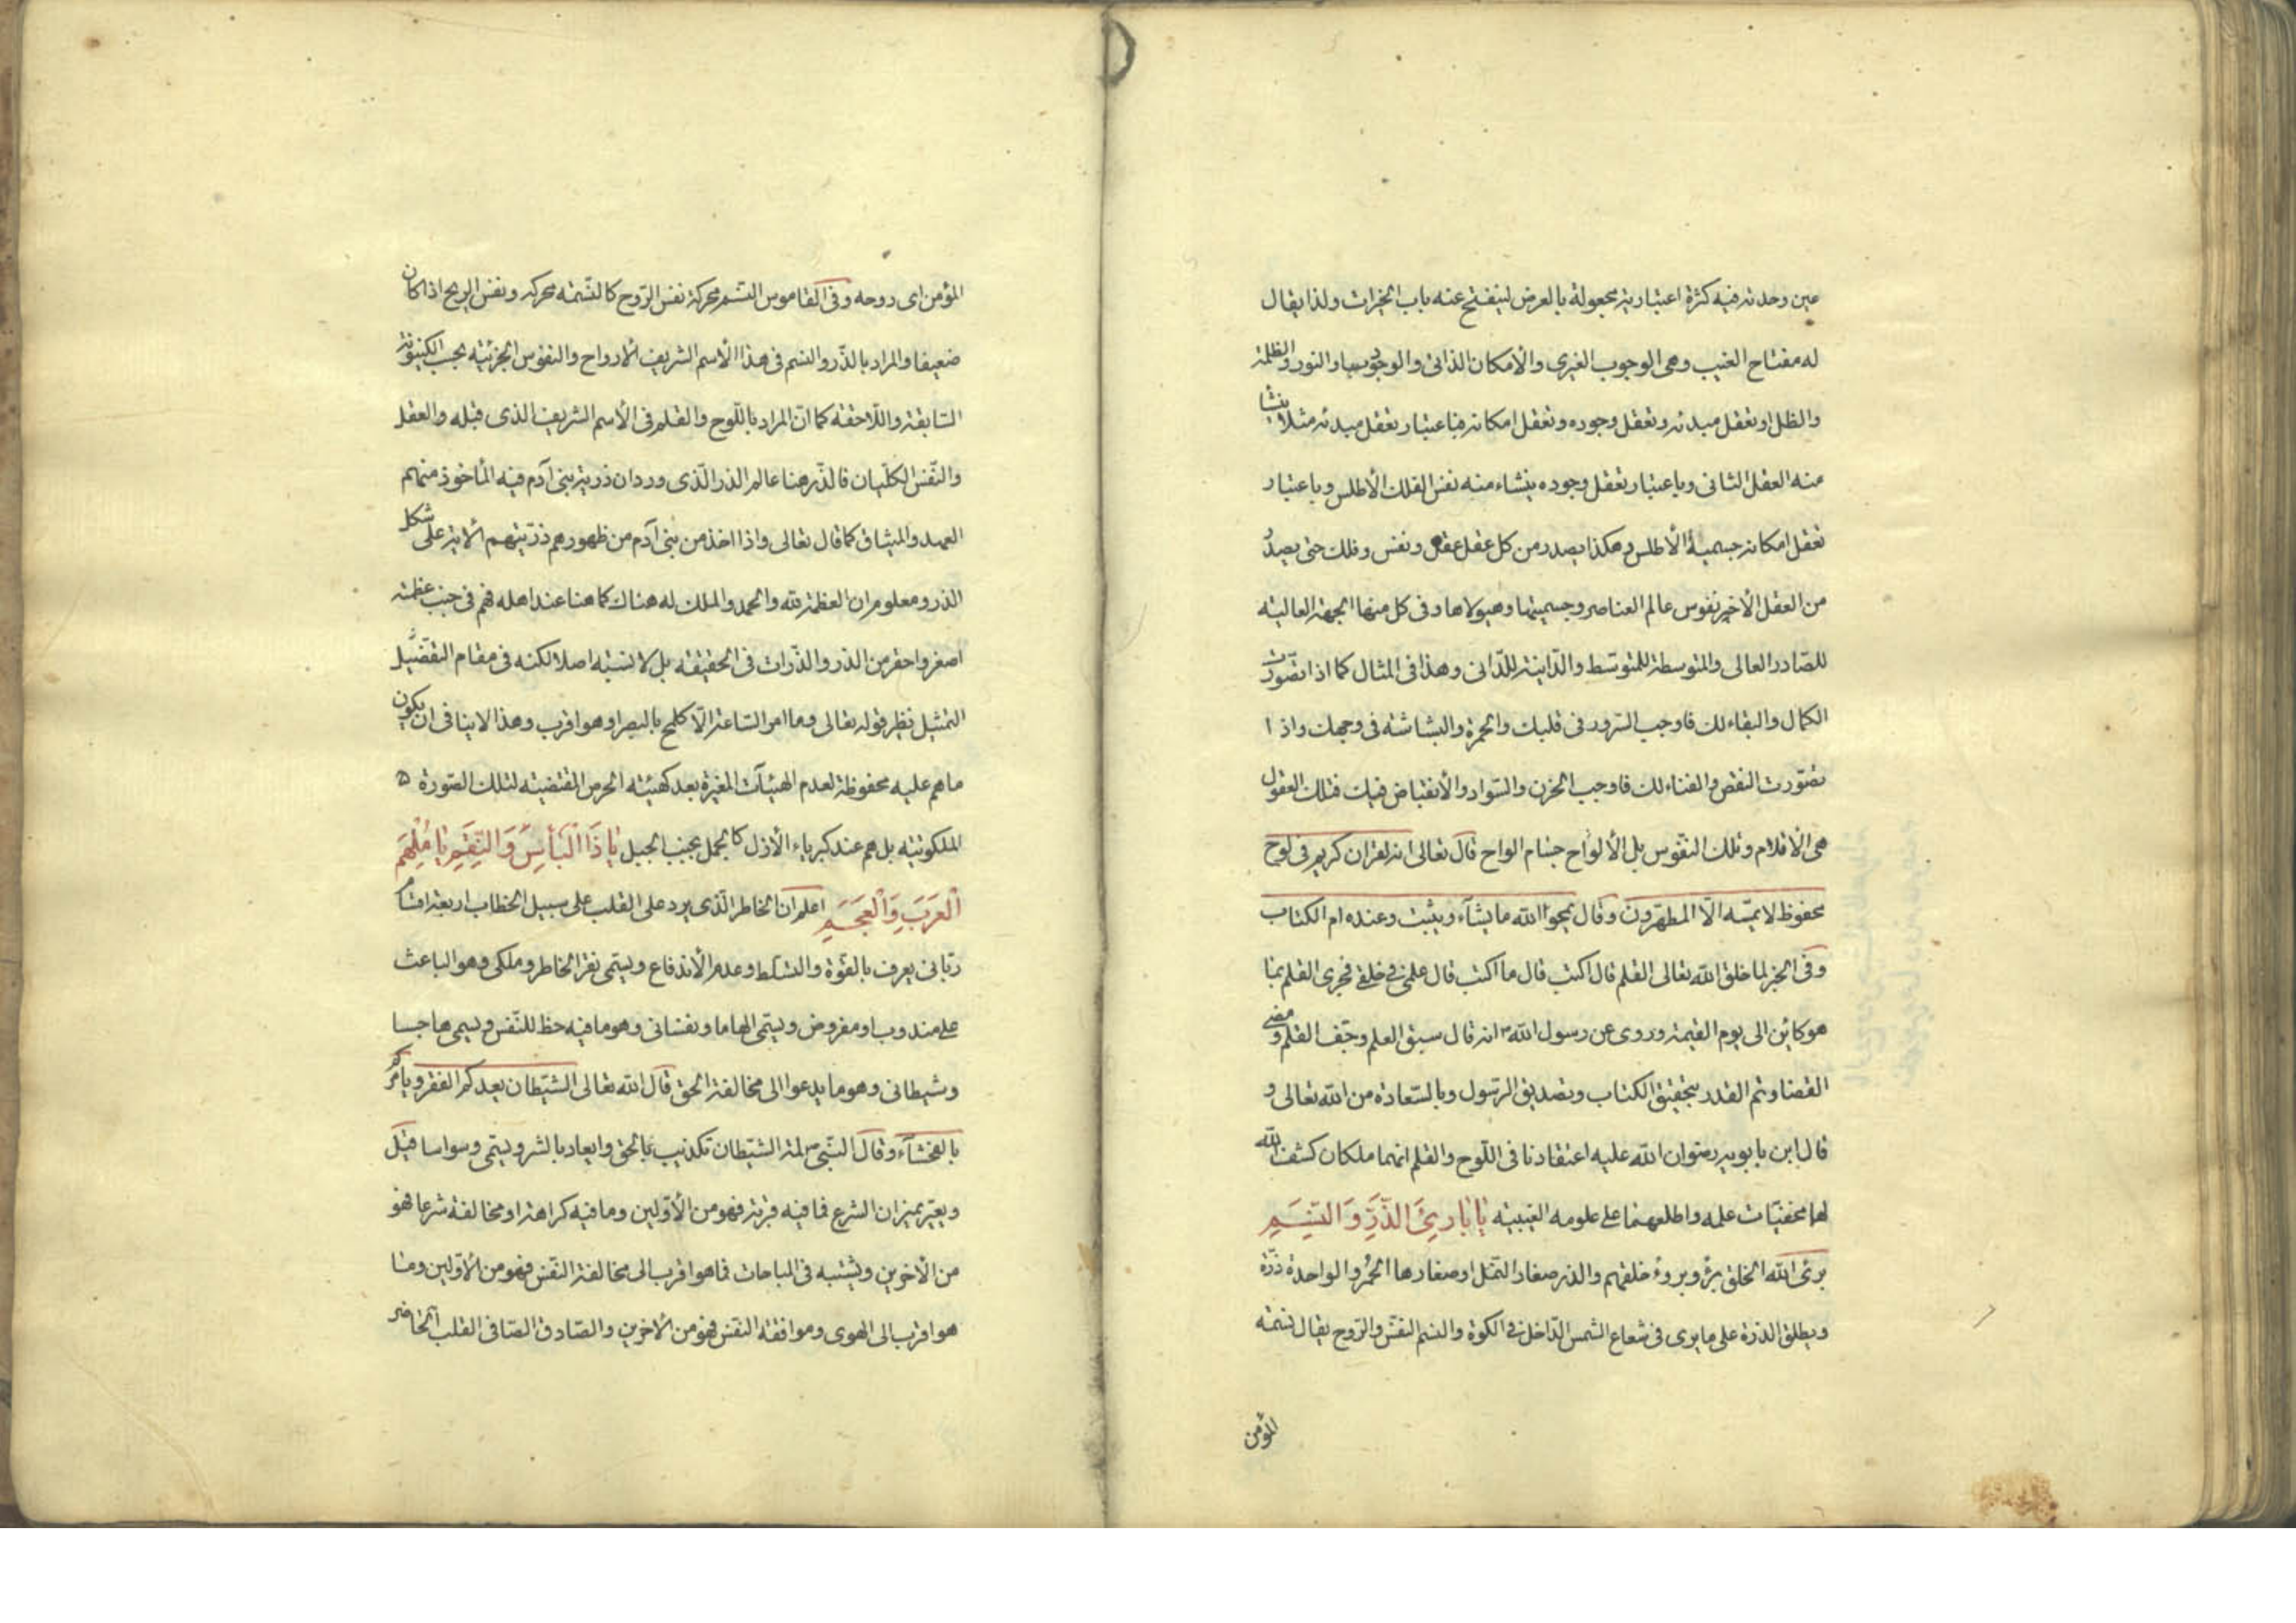 عين وحدته فيه كثرة اعتبارية مجعولة بالعرض لينفتح عنه باب الخيرات ولذا يقال
له مفتاح الغيب وهى الوجوب الغيرى والأمكان الذاتى والوجود والنور والظلمة
والظل او تعقل مبدئه وتعقل وجوده وتعقل امكانه فباعتبار تعقل مبدئه مثلا ينشا
منه العقل الثانى وباعتبار تعقل وجوده ينشاء منه نفس الفلك الأطلس وباعتبار
تعقل امكانه جسمية الأطلس وهكذا يصدر من كل عقل عقل ونفس وفلك حتى يصدر
من العقل الأخير نفوس عالم العناصر وجسميتها وهيولاها وفى كل منها الجهة العالية
للصادر العالى والمتوسطة للمتوسط والدانية للدانى وهذا فى المثال كما اذا تصورت
الكمال والبقاء لك فاوجب السرور فى قلبك والحمرة والبشاشة فى وجهك واذا
تصورت النقص والفناء لك فاوجب الحزن والسواد والأنقباض فيك فتلك العقول
هى الأقلام وتلك النفوس بل الألواح جسام الواح قال تعالى انه لقران كريم فى لوح
محفوظ لا يمسه الا المطهرون وقال يمحوا الله ما يشآء ويثبت وعنده ام الكتاب
وفى الخبر لما خلق الله تعالى القلم قال اكتب قال ما اكتب قال علمى فى خلقى فجرى القلم بما
هو كائن الى يوم القيمة وروى عن رسول الله ص انه قال سبق العلم وجف القلم ومضى
القضا وتم القدر بتحقيق الكتاب وتصديق الرسول وبالسعادة من الله تعالى و
قال ابن بابويه رضوان الله عليه اعتقادنا فى اللوح والقلم انهما ملكان كشف الله
لهما مخفيات علمه واطلعهما على علومه الغيبية يا بارئ الذر والنسم
برئ الله الخلق برؤ وبروء خلقهم والذر صغار النمل او صغارها الحمر والواحدة ذرة
ويطلق الذرة على ما يرى فى شعاع الشمس الداخل فى الكوة والنسم النفس والروح يقال نسمة
المؤمن
المؤمن اى روحه وفى القاموس النسم محركة نفس الروح كالنسمة محركة ونفس الريح اذا كان
ضعيفا والمراد بالذر والنسم فى هذا الأسم الشريف الأرواح والنفوس الجزئية بحسب الكينونة
السابقة واللاحقة كما ان المراد باللوح والقلم فى الأسم الشريف الذى قبله والعقل
والنفس الكليان فالذر هنا عالم الذر الذى ورد ان ذرية بنى آدم فيه المأخوذ منهم
العهد والميثاق كما قال تعالى واذا اخذ من بنى آدم من ظهورهم ذريتهم الأية على شكل
الذر ومعلوم ان العظمة لله والحمد والملك له هناك كما هنا عند اهله فهم فى جنب عظمته
اصغر واحقر من الذر والذرات فى الحقيقة بل لا نسبة اصلا لكنه فى مقام التقضيل
التمثيل نظير قوله تعالى وما امر الساعة الا كلمح بالبصر او هو اقرب وهذا لا ينافى ان يكون
ما هم عليه محفوظة لعدم الهيئآت المغيرة بعد كهيئة الحرص المقتضية لتلك الصورة
الملكوتية بل هم عند كبرياء الأزل كالجمل بجنب الجبل يا ذا البأس والنقم يا ملهم
العرب والعجم اعلم ان الخاطر الذى يرد على القلب على سبيل الخطاب اربعة اقسام
ربانى يعرف بالقوة والتسلط وعدم الأندفاع ويسمى نقر الخاطر وملكى وهو الباعث
على مندوب او مفروض ويسمى الهاما ونفسانى وهو ما فيه حظ للنفس ويسمى هاجسا
وشيطانى وهو ما يدعوا الى مخالفة الحق قال الله تعالى الشيطان يعدكم الفقر ويامركم
بالفحشآء وقال النبى ص لمة الشيطان تكذيب بالحق وايعاد بالشر ويسمى وسواسا قيل
ويعير بميزان الشرع فما فيه قربة فهو من الأولين وما فيه كراهة او مخالفة شرعا فهو
من الأخرين ويشتبه فى المباحات فما هو اقرب الى مخالفة النفس فهو من الأولين وما
هو اقرب الى الهوى وموافقة النفس فهو من الأخرين والصادق الصافى القلب الحاضر